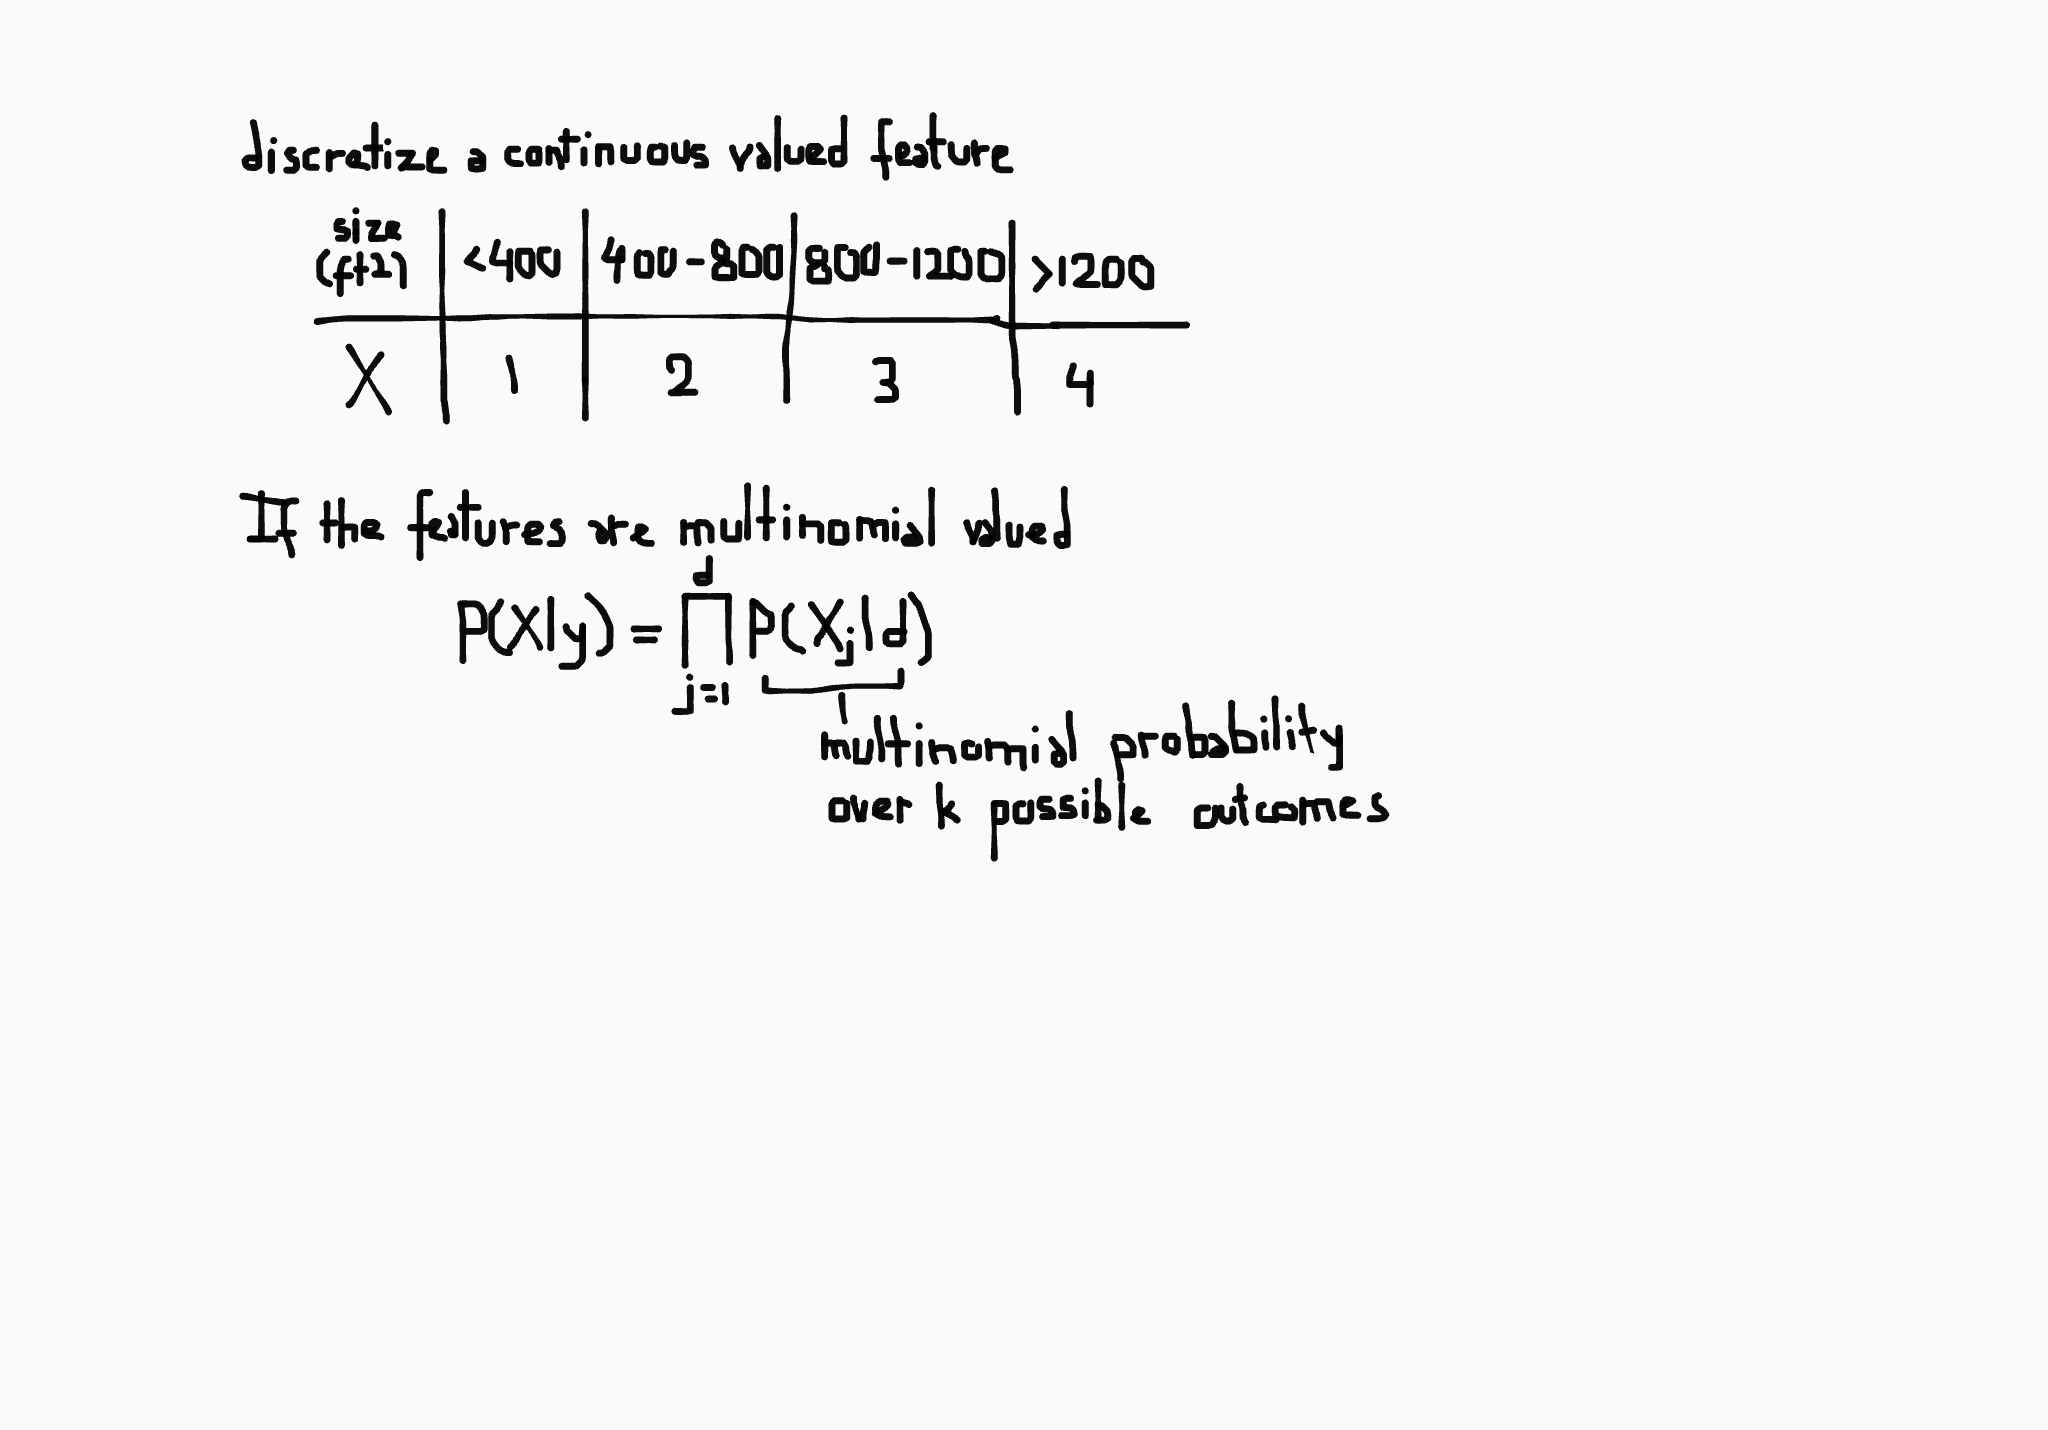 discretize a continuous valued feature
size (ft2) | <400 | 400-800 | 800-1200 | >1200
X | 1 | 2 | 3 | 4
If the features are multinomial valued
P(X|y) = ∏_{j=1}^{d} P(X_j|d)
multinomial probability
over k possible outcomes